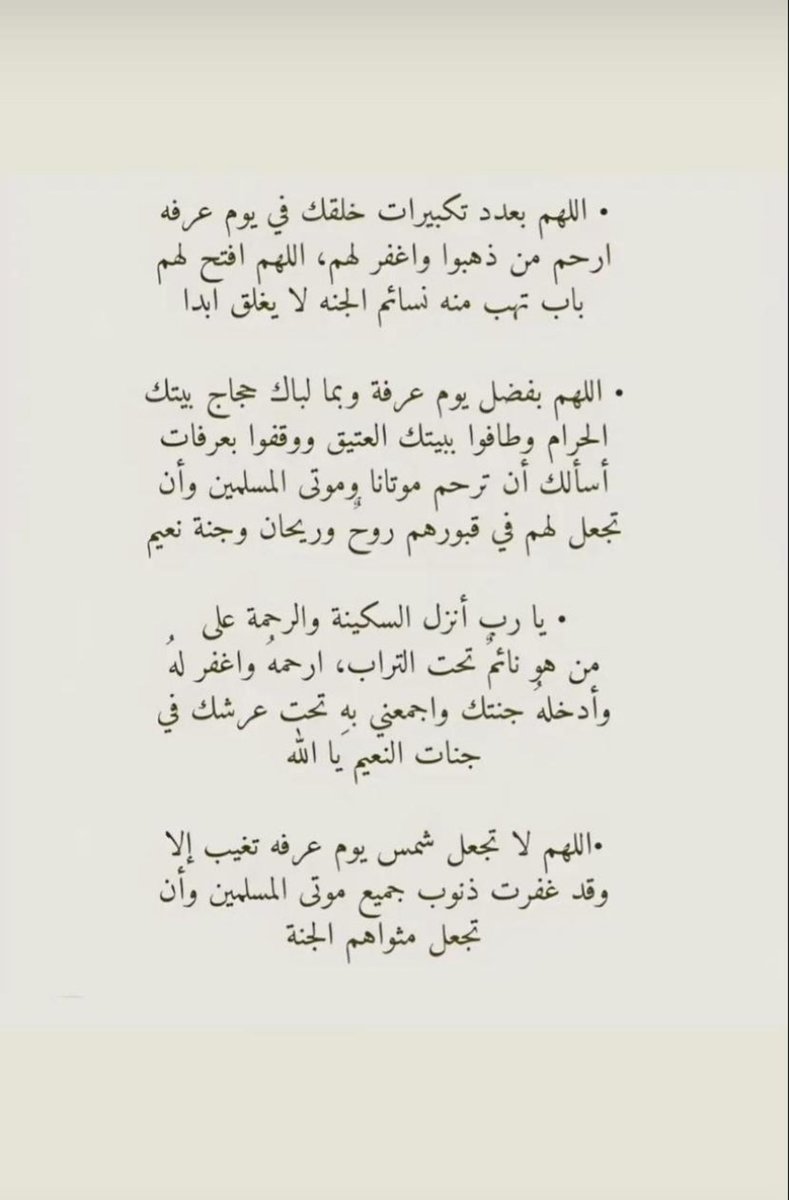 • اللهم بعدد تكبيرات خلقك في يوم عرفه
ارحم من ذهبوا واغفر لهم، اللهم افتح لهم
باب تهب منه نسائم الجنه لا يغلق ابدا
• اللهم بفضل يوم عرفة وبما لباك حجاج بيتك
الحرام وطافوا ببيتك العتيق ووقفوا بعرفات
أسألك أن ترحم موتانا وموتى المسلمين وأن
تجعل لهم في قبورهم روحٌ وريحان وجنة نعيم
• يا رب أنزل السكينة والرحمة على
من هو نائمٌ تحت التراب، ارحمهُ واغفر لهُ
وأدخلهُ جنتك واجمعني بهِ تحت عرشك في
جنات النعيم يَا الله
•اللهم لا تجعل شمس يوم عرفه تغيب إلا
وقد غفرت ذنوب جميع موتى المسلمين وأن
تجعل مثواهم الجنة